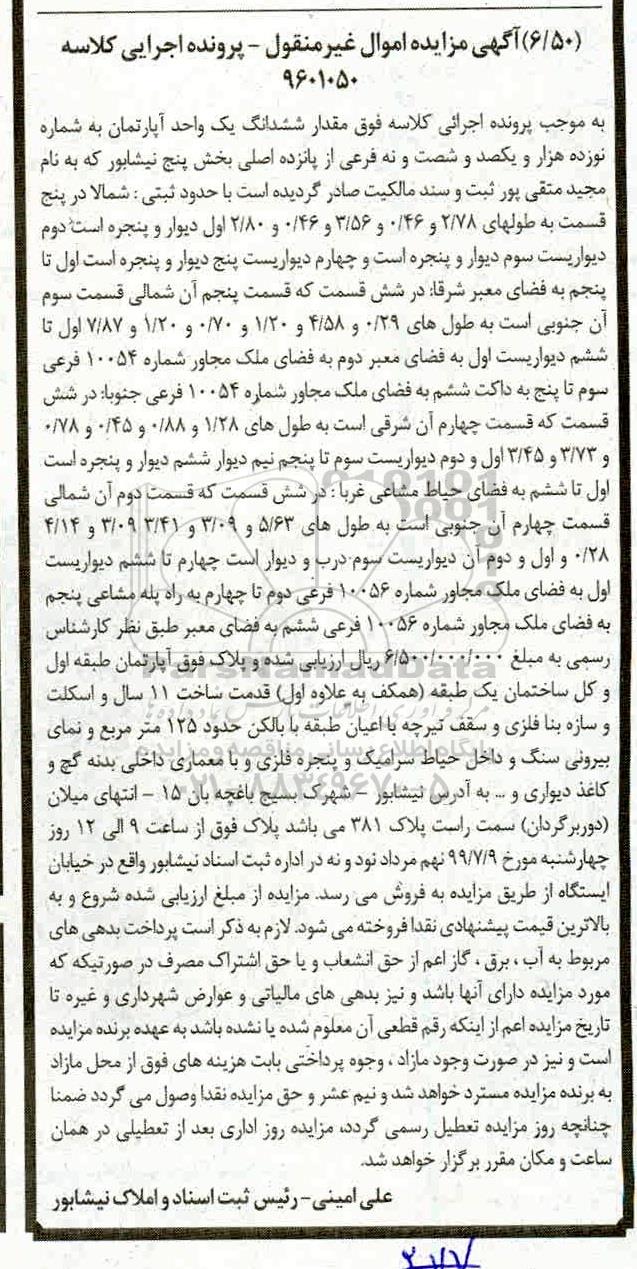 (۶/۵۰) آگهی مزایده اموال غیرمنقول - پرونده اجرایی کلاسه
۹۶۰۱۰۵۰
به موجب پرونده اجرائی کلاسه فوق مقدار ششدانگ یک واحد آپارتمان به شماره
نوزده هزار و یکصد و شصت و نه فرعی از پانزده اصلی بخش پنج نیشابور که به نام
مجید متقی پور ثبت و سند مالکیت صادر گردیده است با حدود ثبتی : شمالا در پنج
قسمت به طولهای ۲/۷۸ و ۰/۴۶ و ۳/۵۶ و ۰/۴۶ و ۲/۸۰ اول دیوار و پنجره است دوم
دیواریست سوم دیوار و پنجره است و چهارم دیواریست پنج دیوار و پنجره است اول تا
پنجم به فضای معبر شرقا: در شش قسمت که قسمت پنجم آن شمالی قسمت سوم
آن جنوبی است به طول های ۰/۲۹ و ۴/۵۸ و ۱/۲۰ و ۰/۷۰ و ۱/۲۰ و ۷/۸۷ اول تا
ششم دیواریست اول به فضای معبر دوم به فضای ملک مجاور شماره ۱۰۰۵۴ فرعی
سوم تا پنج به داکت ششم به فضای ملک مجاور شماره ۱۰۰۵۴ فرعی جنوبا: در شش
قسمت که قسمت چهارم آن شرقی است به طول های ۱/۲۸ و ۰/۸۸ و ۰/۴۵ و ۰/۷۸
و ۳/۷۳ و ۳/۴۵ اول و دوم دیواریست سوم تا پنجم نیم دیوار ششم دیوار و پنجره است
اول تا ششم به فضای حیاط مشاعی غربا : در شش قسمت که قسمت دوم آن شمالی
قسمت چهارم آن جنوبی است به طول های ۵/۶۳ و ۳/۰۹ و ۳/۴۱ ۳/۰۹ و ۴/۱۴
۰/۲۸ و اول و دوم آن دیواریست سوم درب و دیوار است چهارم تا ششم دیواریست
اول به فضای ملک مجاور شماره ۱۰۰۵۶ فرعی دوم تا چهارم به راه پله مشاعی پنجم
به فضای ملک مجاور شماره ۱۰۰۵۶ فرعی ششم به فضای معبر طبق نظر کارشناس
رسمی به مبلغ ۶/۵۰۰/۰۰۰/۰۰۰ ریال ارزیابی شده و پلاک فوق آپارتمان طبقه اول
و کل ساختمان یک طبقه (همکف به علاوه اول) قدمت ساخت ۱۱ سال و اسکلت
و سازه بنا فلزی و سقف تیرچه با اعیان طبقه با بالکن حدود ۱۲۵ متر مربع و نمای
بیرونی سنگ و داخل حیاط سرامیک و پنجره فلزی و با معماری داخلی بدنه گچ و
کاغذ دیواری و ... به آدرس نیشابور - شهرک بسیج باغچه بان ۱۵ - انتهای میلان
(دوربرگردان) سمت راست پلاک ۳۸۱ می باشد پلاک فوق از ساعت ۹ الی ۱۲ روز
چهارشنبه مورخ ۹۹/۷/۹ نهم مرداد نود و نه در اداره ثبت اسناد نیشابور واقع در خیابان
ایستگاه از طریق مزایده به فروش می رسد. مزایده از مبلغ ارزیابی شده شروع و به
بالاترین قیمت پیشنهادی نقدا فروخته می شود. لازم به ذکر است پرداخت بدهی های
مربوط به آب ، برق ، گاز اعم از حق انشعاب و یا حق اشتراک مصرف در صورتیکه که
مورد مزایده دارای آنها باشد و نیز بدهی های مالیاتی و عوارض شهرداری و غیره تا
تاریخ مزایده اعم از اینکه رقم قطعی آن معلوم شده یا نشده باشد به عهده برنده مزایده
است و نیز در صورت وجود مازاد ، وجوه پرداختی بابت هزینه های فوق از محل مازاد
به برنده مزایده مسترد خواهد شد و نیم عشر و حق مزایده نقدا وصول می گردد ضمنا
چنانچه روز مزایده تعطیل رسمی گردد، مزایده روز اداری بعد از تعطیلی در همان
ساعت و مکان مقرر برگزار خواهد شد.
علی امینی- رئیس ثبت اسناد و املاک نیشابور